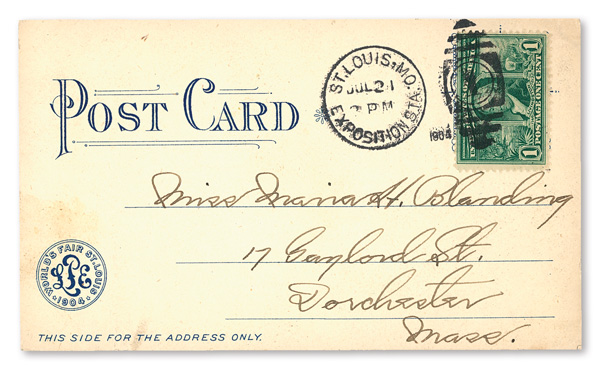 POST CARD
ST. LOUIS, MO.
JUL 21
PM
EXPOSITION STA.
1904
1 1
POSTAGE ONE CENT
Miss Maria H. Blanding
17 Gaylord St.
Dorchester
Mass.
WORLD'S FAIR ST. LOUIS
LPE
·1904·
THIS SIDE FOR THE ADDRESS ONLY.